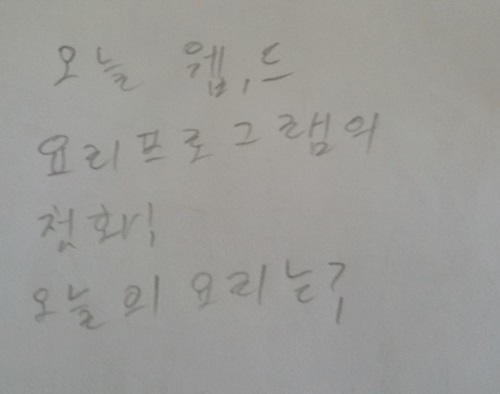 오늘 웹,드
요리프로그램의
첫화!
오늘의 요리는?